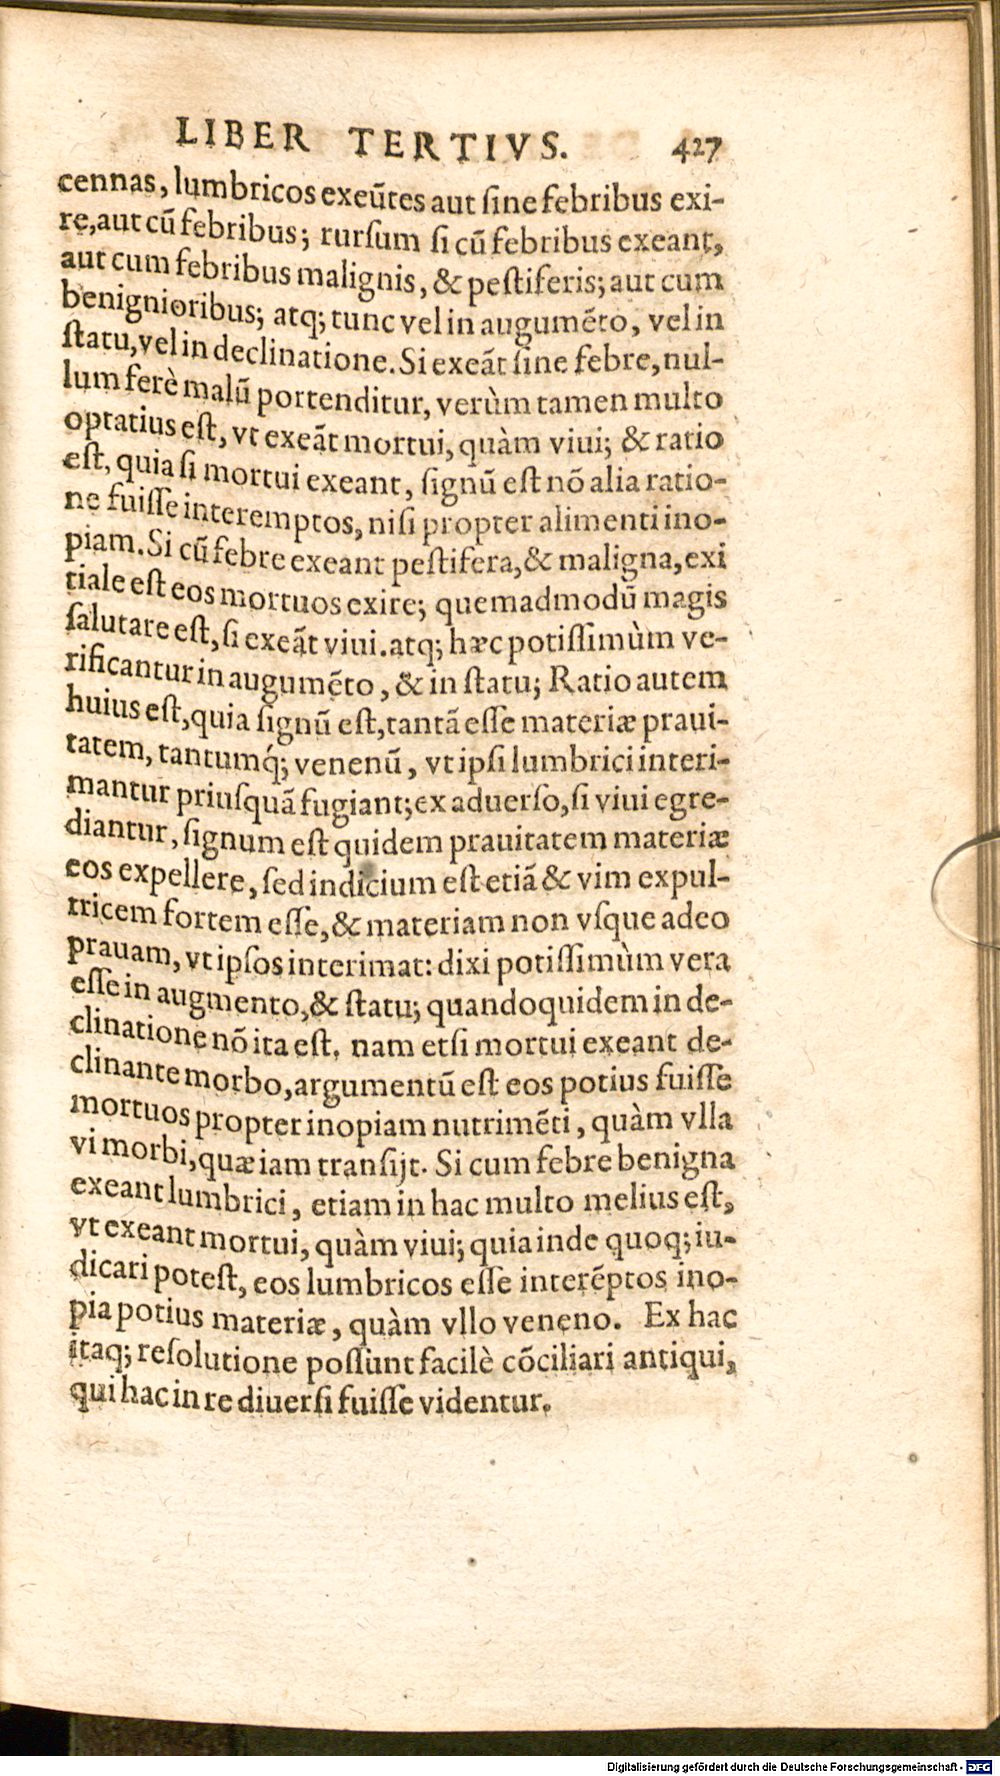 LIBER TERTIVS. 427
cennas, lumbricos exeũtes aut ſine febribus exi-
re, aut cũ febribus; rurſum ſi cũ febribus exeant,
aut cum febribus malignis, & peſtiferis; aut cum
benignioribus; atq; tunc vel in augumẽto, vel in
ſtatu, vel in declinatione. Si exeãt ſine febre, nul-
lum ferè malũ portenditur, verùm tamen multo
optatius eſt, vt exeãt mortui, quàm viui; & ratio
eſt, quia ſi mortui exeant, ſignũ eſt nõ alia ratio-
ne fuiſſe interemptos, niſi propter alimenti ino-
piam. Si cũ febre exeant peſtifera, & maligna, exi
tiale eſt eos mortuos exire; quemadmodũ magis
ſalutare eſt, ſi exeãt viui. atq; hæc potiſſimùm ve-
rificantur in augumẽto, & in ſtatu; Ratio autem
huius eſt, quia ſignũ eſt, tantã eſſe materiæ praui-
tatem, tantumq́; venenũ, vt ipſi lumbrici interi-
mantur priuſquã fugiant; ex aduerſo, ſi viui egre-
diantur, ſignum eſt quidem prauitatem materiæ
eos expellere, ſed indicium eſt etiã & vim expul-
tricem fortem eſſe, & materiam non vſque adeo
prauam, vt ipſos interimat: dixi potiſſimùm vera
eſſe in augmento, & ſtatu; quandoquidem in de-
clinatione nõ ita eſt. nam etſi mortui exeant de-
clinante morbo, argumentũ eſt eos potius fuiſſe
mortuos propter inopiam nutrimẽti, quàm vlla
vi morbi, quæ iam tranſijt. Si cum febre benigna
exeant lumbrici, etiam in hac multo melius eſt,
vt exeant mortui, quàm viui; quia inde quoq; iu-
dicari poteſt, eos lumbricos eſſe interẽptos ino-
pia potius materiæ, quàm vllo veneno. Ex hac
itaq; reſolutione poſſunt facilè cõciliari antiqui,
qui hac in re diuerſi fuiſſe videntur.
Digitalisierung gefördert durch die Deutsche Forschungsgemeinschaft - DFG